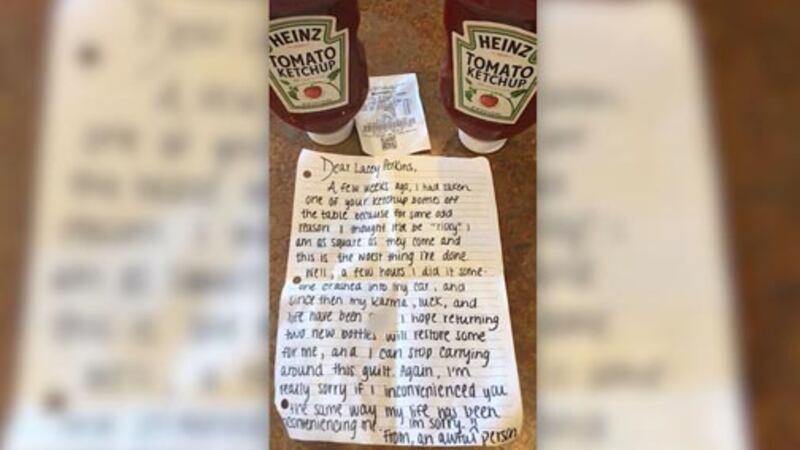 HEINZ
TOMATO
KETCHUP
HEINZ
TOMATO
KETCHUP
Dear Lacey Perkins,
A few weeks ago, I had taken
one of your ketchup bottles off
the table because for some odd
reason I thought it'd be "risky" I
am as square as they come and
this is the worst thing I've done.
Well, a few hours I did it some-
one crashed into my car, and
since then my karma, luck, and
life have been I hope returning
two new bottles will restore some
for me, and I can stop carrying
around this guilt. Again, I'm
really sorry if I inconvenienced you
the same way my life has been
inconveniencing me. I'm sorry. !!
From, an awful person